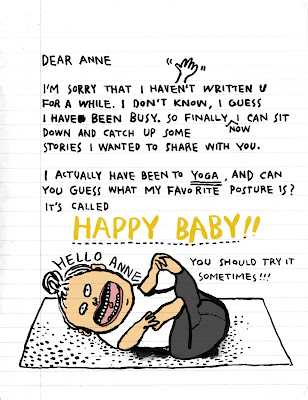 DEAR ANNE
I'M SORRY THAT I HAVEN'T WRITTEN U
FOR A WHILE. I DON'T KNOW, I GUESS
I HAVE BEEN BUSY. SO FINALLY NOW I CAN SIT
DOWN AND CATCH UP SOME
STORIES I WANTED TO SHARE WITH YOU.
I ACTUALLY HAVE BEEN TO YOGA, AND CAN
YOU GUESS WHAT MY FAVORITE POSTURE IS?
IT'S CALLED
HAPPY BABY!!
HELLO ANNE
YOU SHOULD TRY IT
SOMETIMES!!!